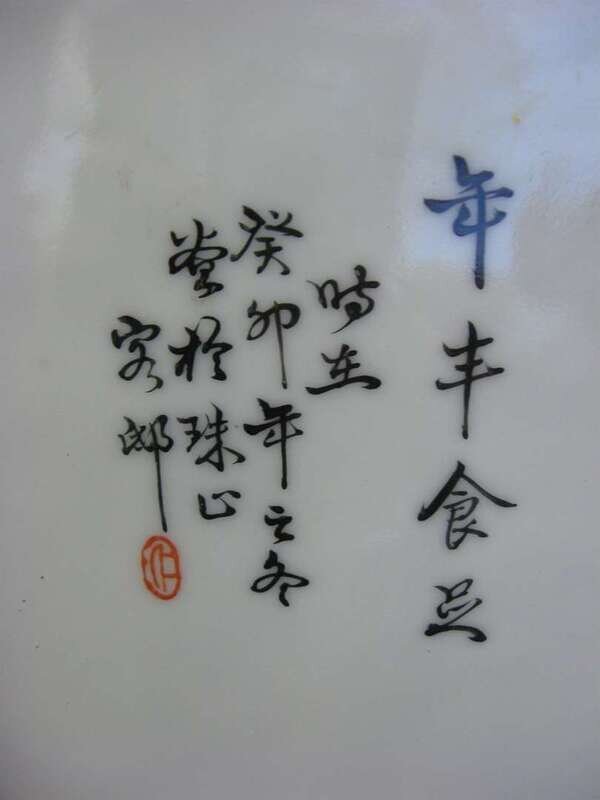 年丰食足
時在
癸卯年之冬
於珠山
客邸